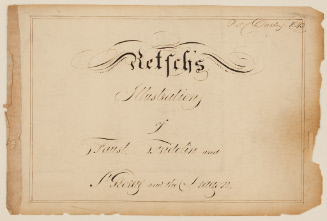 Retsch's
Illustrations
of
Faust Fridolin and
St. George and the Dragon.